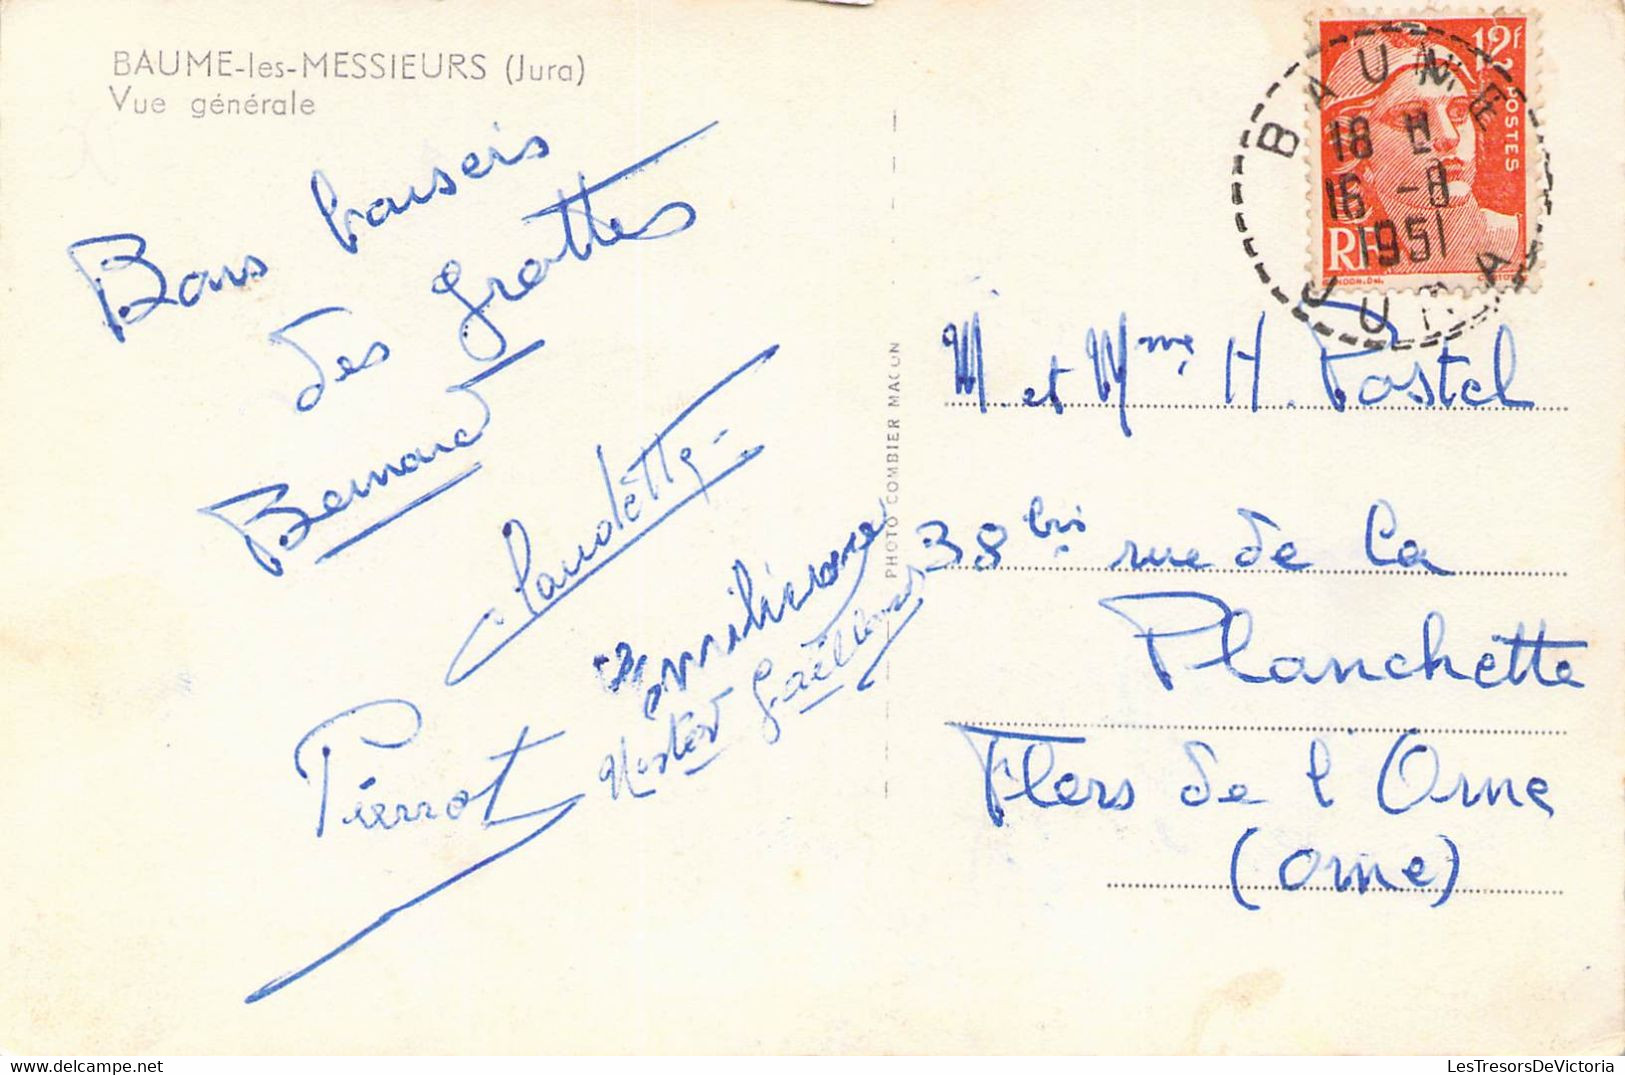 BAUME-les-MESSIEURS (Jura)
Vue générale
Bons baisers
des grottes
Bernard
Claudette
Emilienne
Nestor
Pierrot
PHOTO COMBIER MACON
12f
POSTES
RF
BAUME
18 H
16 -8
1951
JURA
M. et Mme H. Postel
38 bis rue de la
Planchette
Flers de l'Orne
(Orne)
LesTresorsDeVictoria.com